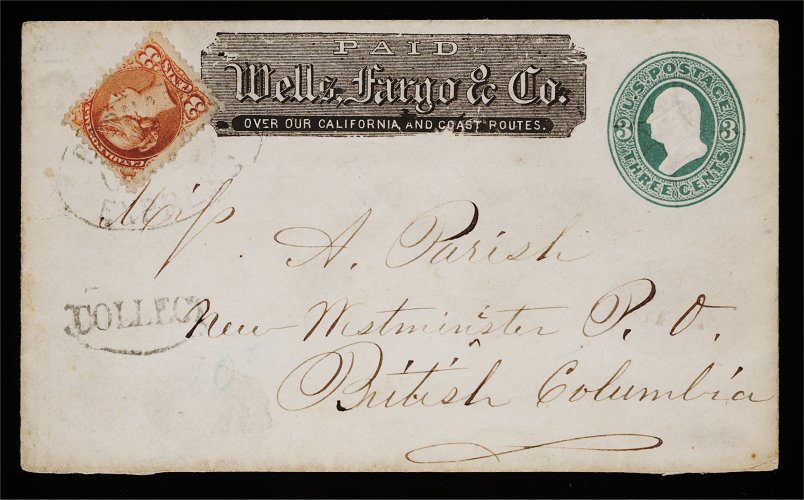 PAID
Wells, Fargo & Co.
OVER OUR CALIFORNIA AND COAST ROUTES.
U.S. POSTAGE
3 3
THREE CENTS
3 CENTS 3
CANADA POSTAGE
Miss
A. Parish
COLLECT
New-Westminister P. O.
British Columbia